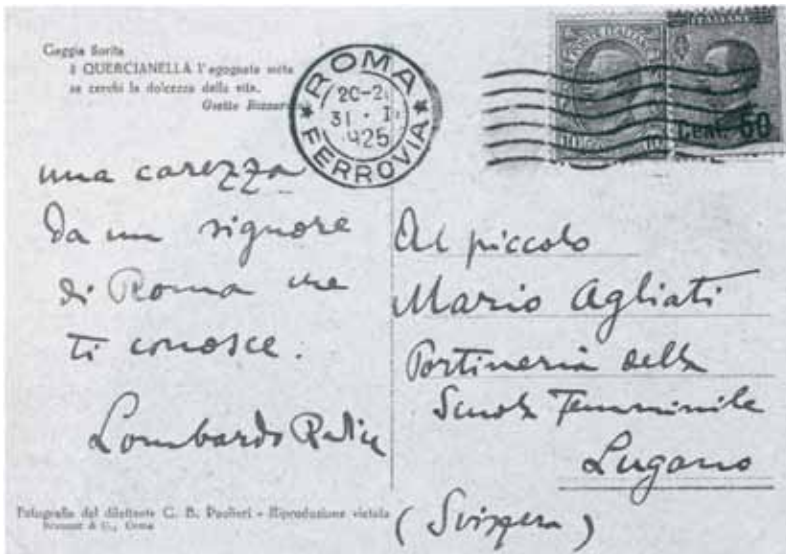 Gaggia fiorita
è QUERCIANELLA l'agognata mèta
se cerchi la dolcezza della vita.
ROMA
20-2
31 · I
1925
FERROVIA
POSTE ITALIANE
Cent. 60
una carezza
da un signore
di Roma che
ti conosce.
Lombardo Radice
Al piccolo
Mario Agliati
Portineria della
Scuola Femminile
Lugano
(Svizzera)
Fotografia del dilettante C. B. Paolieri - Riproduzione vietata